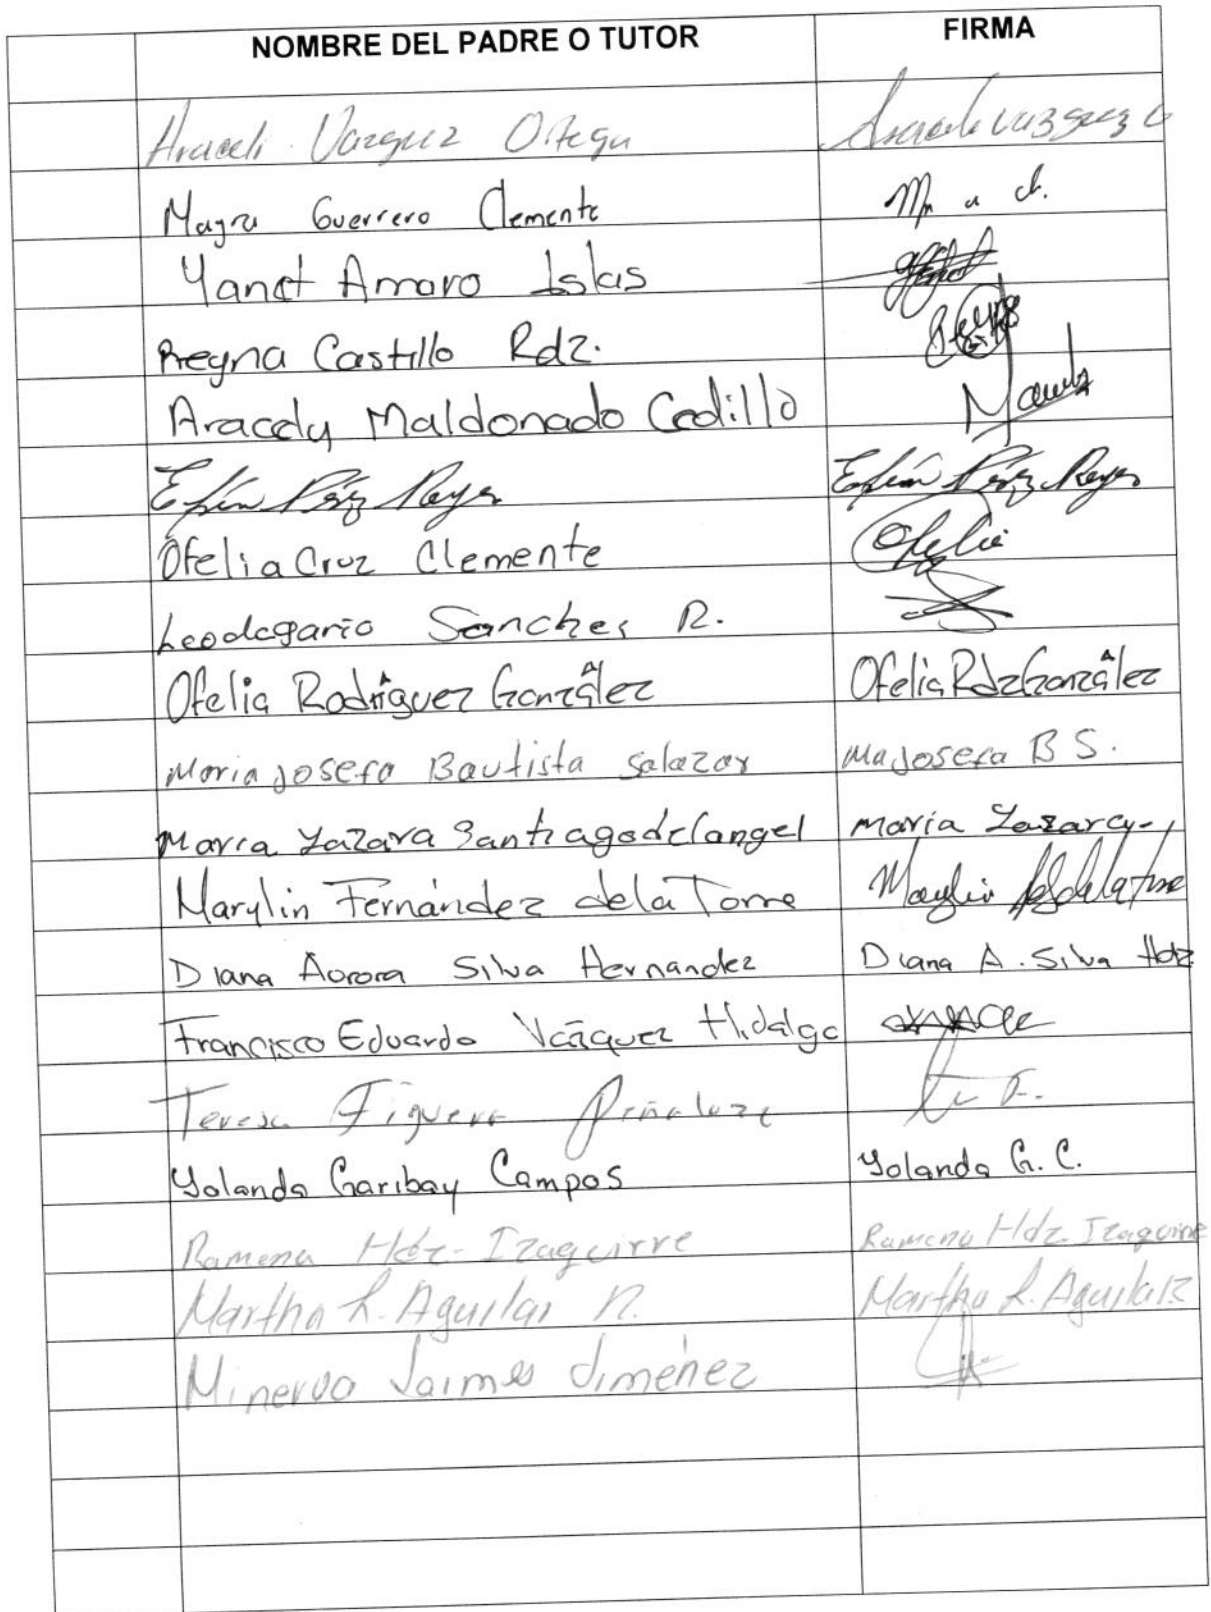 NOMBRE DEL PADRE O TUTOR FIRMA
Araceli Vazquez Ortega Araceli Vazquez O
Mayra Guerrero Clemente
Yanet Amaro Islas
Reyna Castillo Rdz. Reyna
Aracely Maldonado Cedillo
Efrín Pérez Reyes Efrín Pérez Reyes
Ofelia Cruz Clemente Ofelia
Leodegario Sanches R.
Ofelia Rodríguez González Ofelia Rdz González
Maria Josefa Bautista Salazar Ma Josefa B S.
Maria Lazara Santiago del angel maria Lazara
Marylin Fernández de la Torre Marylin de la Torre
Diana Aorora Silva Hernandez Diana A. Silva Hdz
Francisco Eduardo Vázquez Hidalgo
Teresa Figueroa Peñaloza
Yolanda Garibay Campos Yolanda G. C.
Ramona Hdz-Izaguirre Ramona Hdz Izaguirre
Martha L. Aguilar R. Martha L. Aguilar R
Minerva Jaimes Jiménez